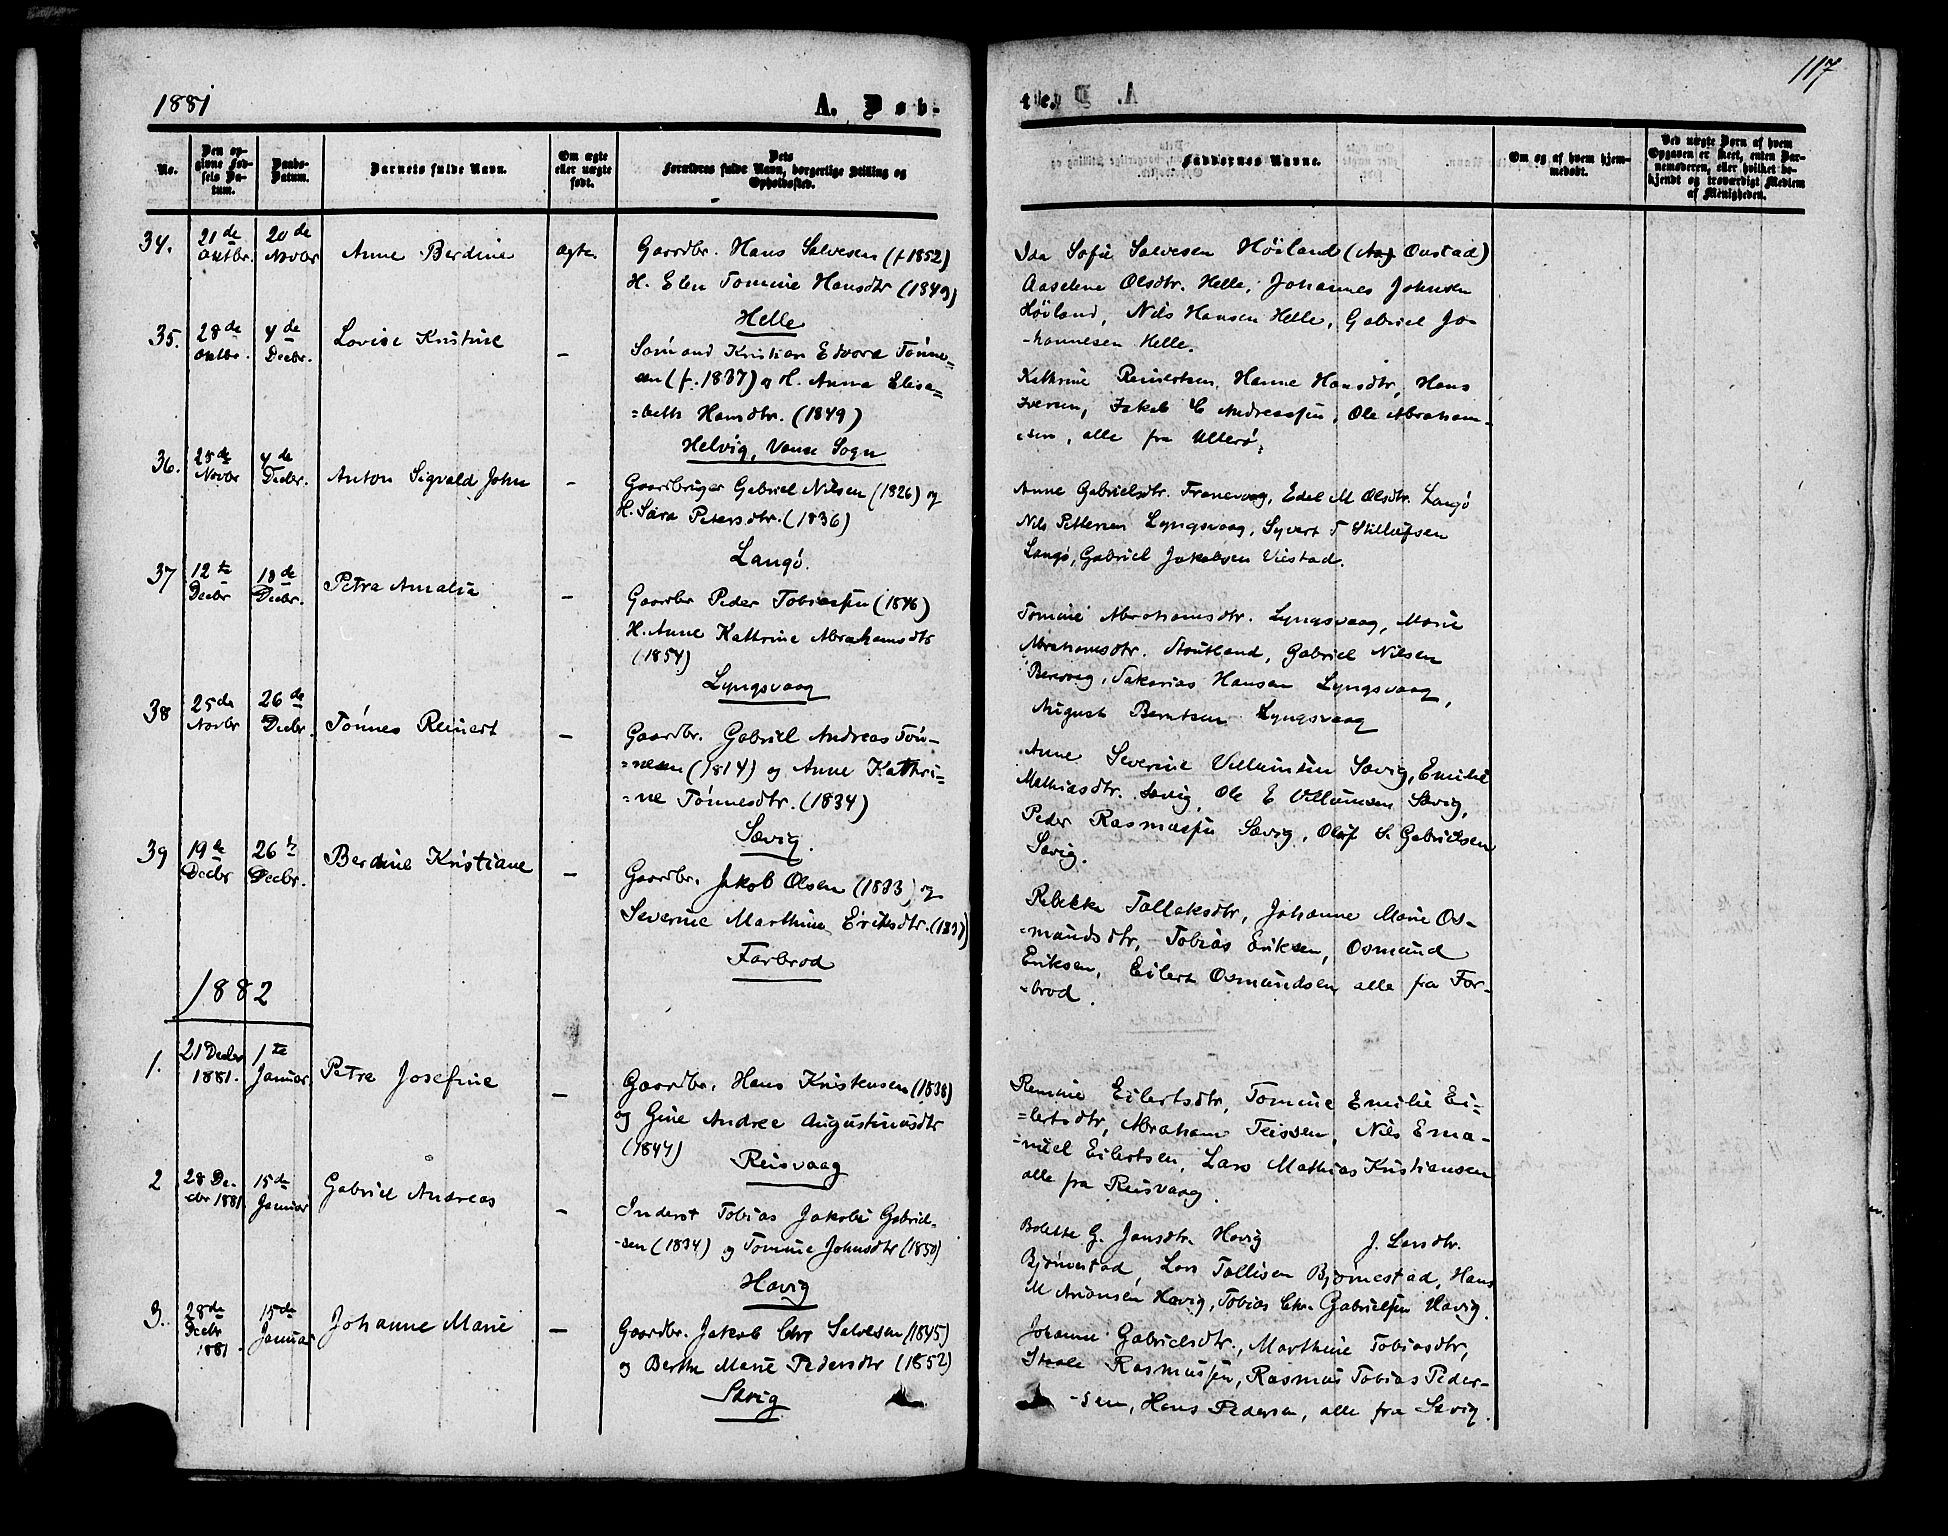 1881
A. Døb-
te.
117
No.
Den op-
givne Fød-
sels Da-
tum.
Daabs-
Datum.
Barnets fulde Navn.
Om ægte
eller uægte
født.
Dets
Forældres fulde Navn, borgerlige Stilling og
Opholdssted.
Faddernes Navne.
Om og af hvem hjem-
medøbt.
Ved uægte Børn af hvem
Opgaven er skeet, enten Bar-
nemoderen, eller hvilket be-
kjendt og troværdigt Medlem
af Menigheden.
34.
21de
Oktbr.
20de
Novbr
Anne Berdine
ægte
Gaardbr. Hans Salvesen (f 1852)
H. Elen Tomine Hansdtr (1849)
Helle
Ida Sofie Salvesen Høiland (Aag Onstad)
Aaselene Olsdtr. Helle, Johannes Johnsen
Høiland, Nils Hansen Helle, Gabriel Jo-
-hannesen Helle.
35.
28de
Oktbr.
4de
Decbr.
Lovise Kristine
-
Sømand Kristian Edvard Tønne-
sen (f. 1837) og H. Anna Elisa-
=beth Hansdtr. (1849)
Helvig, Vanse Sogn
Kathrine Reinertsen, Hanne Hansdtr, Hans
Iversen, Jakob C Andreassen, Ole Abraham-
-sen, alle fra Ullerø,
36.
25de
Novbr
4de
Decbr.
Anton Sigvald John
-
Gaardbruger Gabriel Nilsen (1826) og
H. Sara Petersdtr. (1836)
Langø.
Anne Gabrielsdtr. Franevaag, Edel M Olsdtr. Langø
Nils Pettersen Lyngsvaag, Syvert T Stillufsen
Langø, Gabriel Jakobsen Viestad.
37
12te
Decbr
18de
Decbr.
Petra Amalia
-
Gaardbr Peder Tobiassen (1846)
H. Anne Kathrine Abrahamsdtr
(1854)
Lyngsvaag
Tomine Abrahamsdtr. Lyngsvaag, Marie
Abrahamsdtr. Stoutland, Gabriel Nilsen
Berevig, Sakarias Hansen Lyngsvaag,
August Berntsen Lyngsvaag
38
25de
Novbr
26de
Decbr.
Tønnes Reinert
-
Gaardbr. Gabriel Andreas Tøn-
=nesen (1814) og Anne Kathri-
=ne Tønnesdtr. (1834)
Sævig.
Anne Severine Villumsen Sævig, Emilie
Mathiasdtr. Sævig, Ole E Villumsen Sævig,
Peder Rasmussen Sævig, Oluf S. Gabrielsen
Sævig.
39
19de
Decbr
26de
Decbr.
Berdine Kristiane
-
Gaardbr. Jakob Olsen (1833) og
Severine Marthine Eriksdtr. (1837)
Farbrod
Rebekka Tollaksdtr, Johanne Marie Os-
-mundsdtr, Tobias Eriksen, Osmund
Eriksen, Eilert Osmundsen alle fra Far-
-brod.
1882
1.
21 Decbr
1881.
1te
Januar
Petra Josefine
-
Gaardbr. Hans Kristensen (1838)
og Gine Andrea Augustinusdtr
(1844)
Reisvaag
Remine Eilertsdtr, Tomine Emilie Ei-
=lertsdtr, Abraham Teissen, Nils Ema-
-nuel Eilertsen, Lars Mathias Kristiansen
alle fra Reisvaag.
2
28 De-
cbr 1881.
15de
Januar
Gabriel Andreas
-
Inderst Tobias Jakobi Gabriel-
-sen (1834) og Tomine Johnsdtr (1850)
Havig
Bolette G. Jansdtr. Havig J. Larsdtr.
Bjørnestad, Lars Tollisen Bjørnestad, Hans
M Arionsen Havig, Tobias Chr. Gabrielsen Havig.
3.
28de
Decbr
1881.
15de
Januar
Johanne Marie
-
Gaardbr. Jakob Chr Salvesen (1845)
og Berthe Marie Pedersdtr (1852)
Sævig
Johanne Gabrielsdtr., Marthine Tobiasdtr,
Staale Rasmussen, Rasmus Tobias Peder-
-sen, Hans Pedersen, alle fra Sævig.